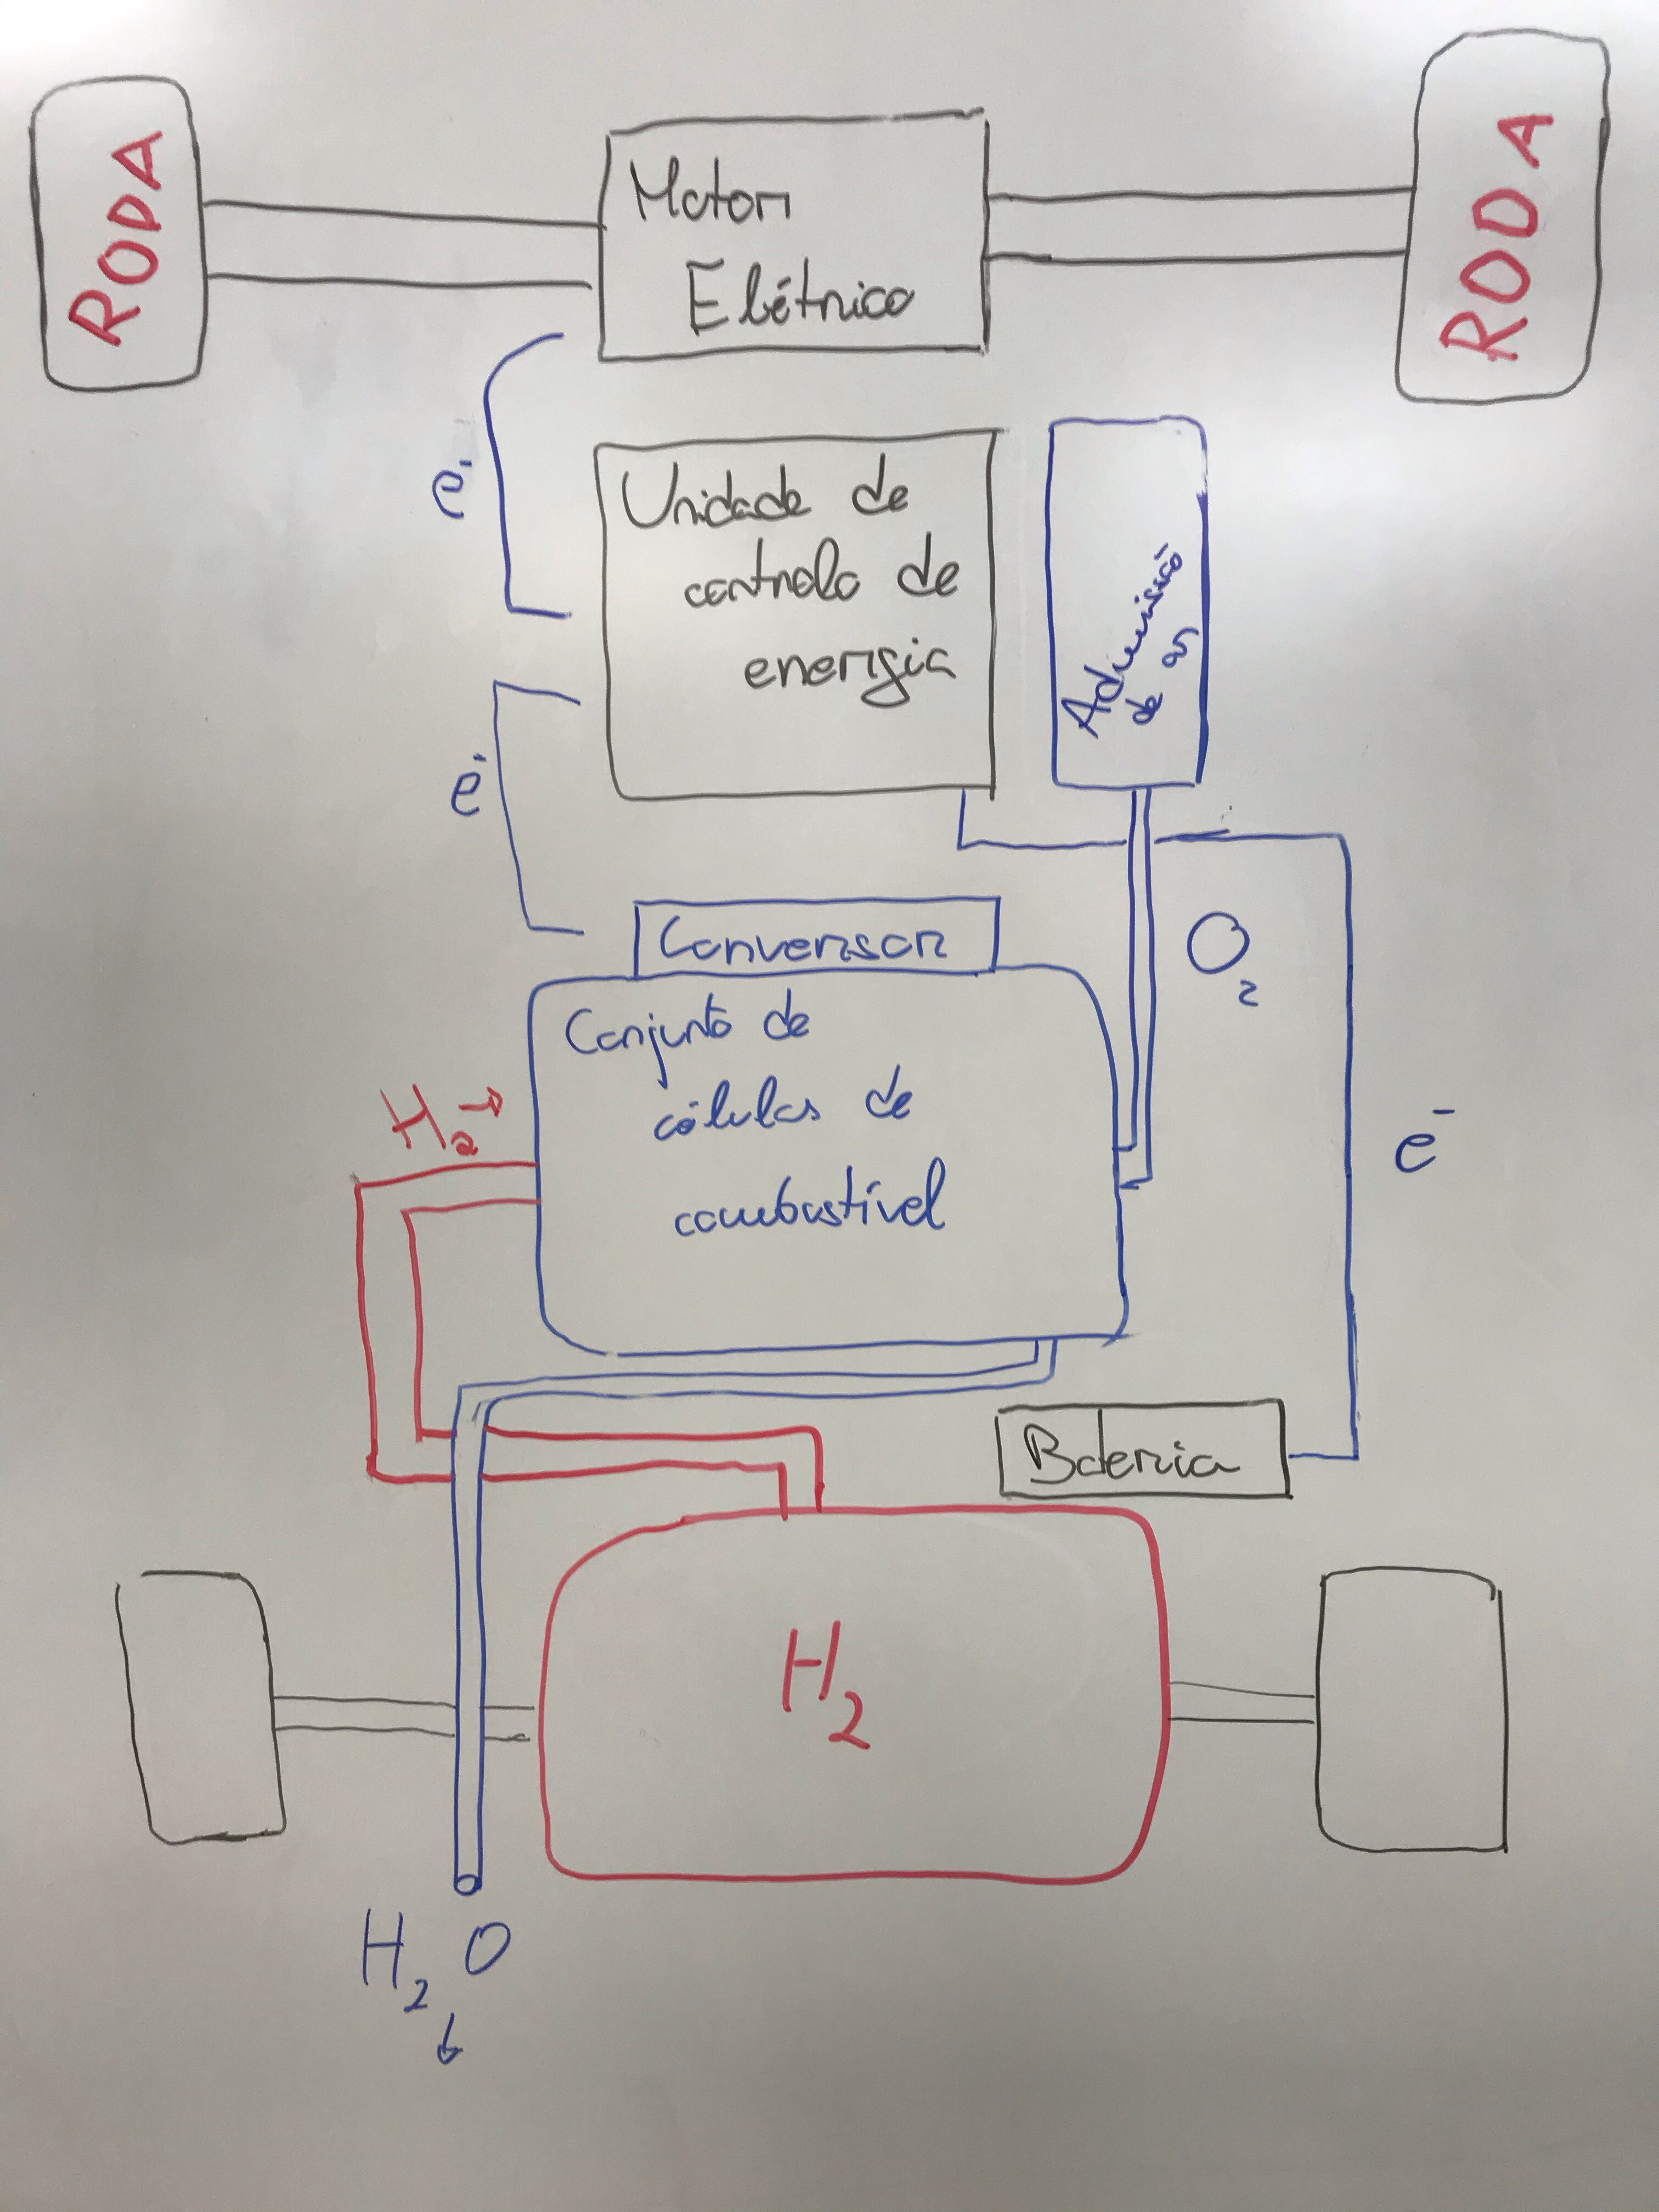 RODA
Motor
Elétrico
RODA
e-
Unidade de
controlo de
energia
Admissão
de ar
e-
Conversor
O2
Conjunto de
células de
combustível
H2→
e-
Bateria
H2
H2O
↓